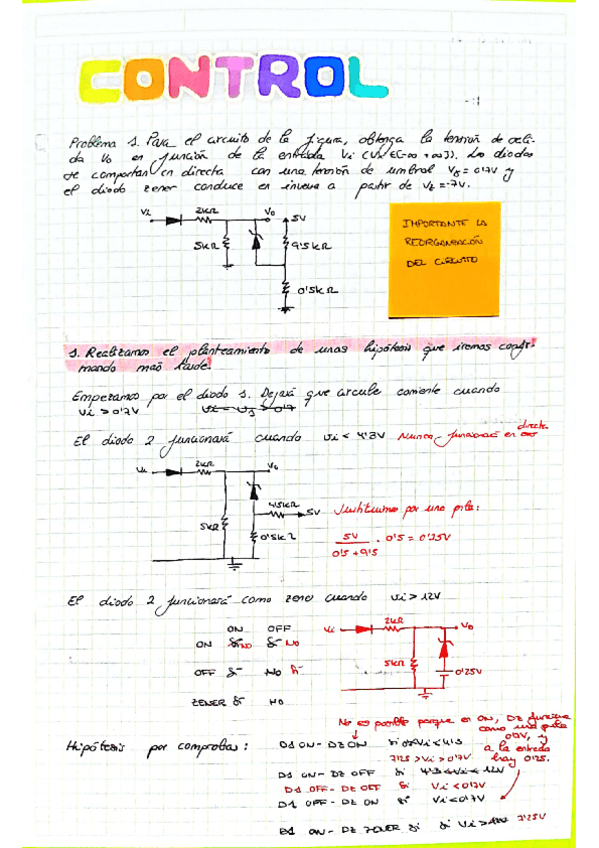 CONTROL
Problema 1. Para el circuito de la figura, obtenga la tensión de sali-
da Vo en función de la entrada Vi (Vi ∈ [-∞ +∞]). Los diodos
se comportan en directa con una tensión de umbral Vγ = 0'7V y
el diodo zener conduce en inversa a partir de Vz = -7V.
Vi 2kΩ Vo 5V
5kΩ 9'5kΩ
0'5kΩ
IMPORTANTE LA
REORGANIZACIÓN
DEL CIRCUITO
1. Realizamos el planteamiento de unas hipótesis que iremos confir-
mando más tarde.
Empezamos por el diodo 1. Dejará que circule corriente cuando
Vi > 0'7V
El diodo 2 funcionará cuando Vi < 4'3V Nunca funcionará en directa
Vi 2kΩ Vo
5V
5kΩ 0'5kΩ
Sustituimos por una pila:
5V / 0'5 + 9'5 · 0'5 = 0'25V
El diodo 2 funcionará como zener cuando Vi > 12V
ON OFF
ON NO NO
OFF NO
ZENER NO
Vi 2kΩ Vo
5kΩ 0'25V
No es posible porque en ON, DZ funciona
como una pila
0'7V, y
a la entrada
hay 0'25.
Hipótesis por comprobar:
D1 ON - DZ ON Si 0'7<Vi<4'3
7'25 > Vi > 0'7V
D1 ON - DZ OFF Si 4'3<Vi< 12V
D1 OFF - DZ OFF Si Vi < 0'7V
D1 OFF - DZ ON Si Vi<0'7V
D1 ON - DZ ZENER Si Vi > 7'25V